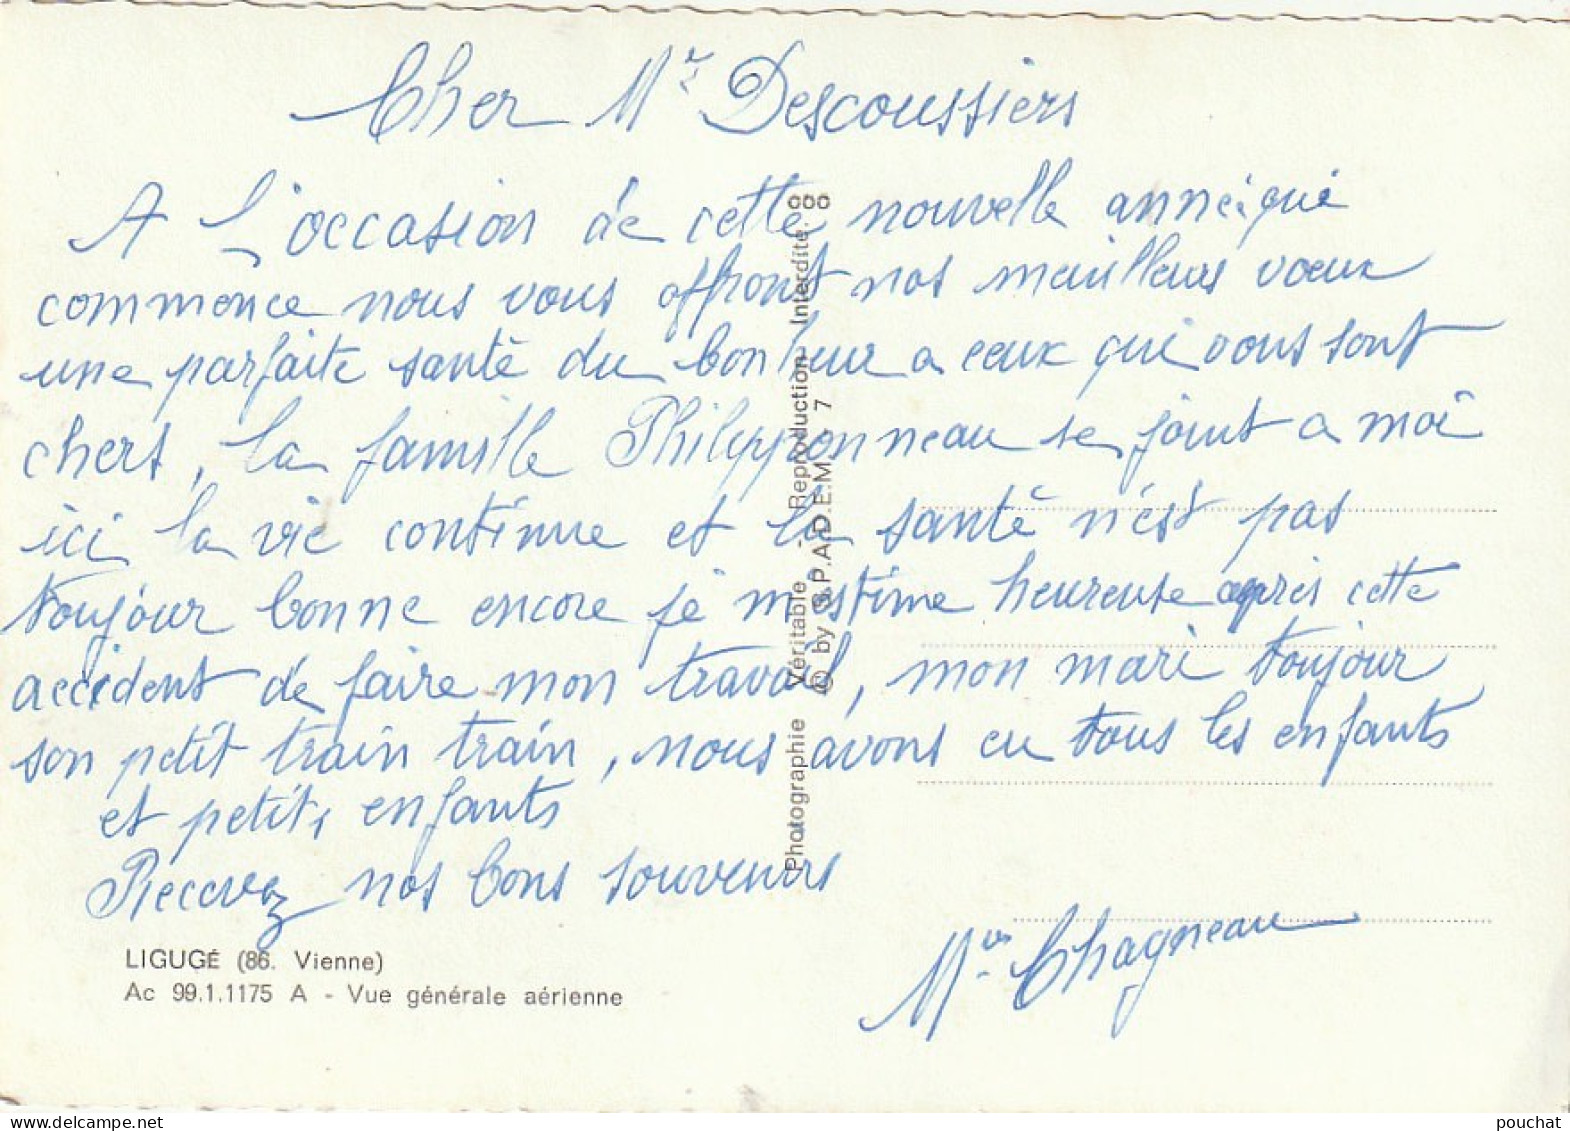 Cher Mr Descoussiers
A l'occasion de cette nouvelle année qui
commence nous vous offront nos meuilleurs voeux
une parfaite santé du bonheur a ceux qui vous sont
chers, la famille Philipponneau se joint a moi
ici la vie continue et la santé n'est pas
toujour bonne encore je m'estime heureuse après cette
accident de faire mon travail, mon mari toujour
son petit train train, nous avons eu tous les enfants
et petits enfants
Recevez nos bons souvenirs
Chagneau
LIGUGÉ (86. Vienne)
Ac 99.1.1175 A - Vue générale aérienne
Photographie Véritable - Reproduction Interdite.
© by S.P.A.D.E.M. 7
delcampe.net
pouchat